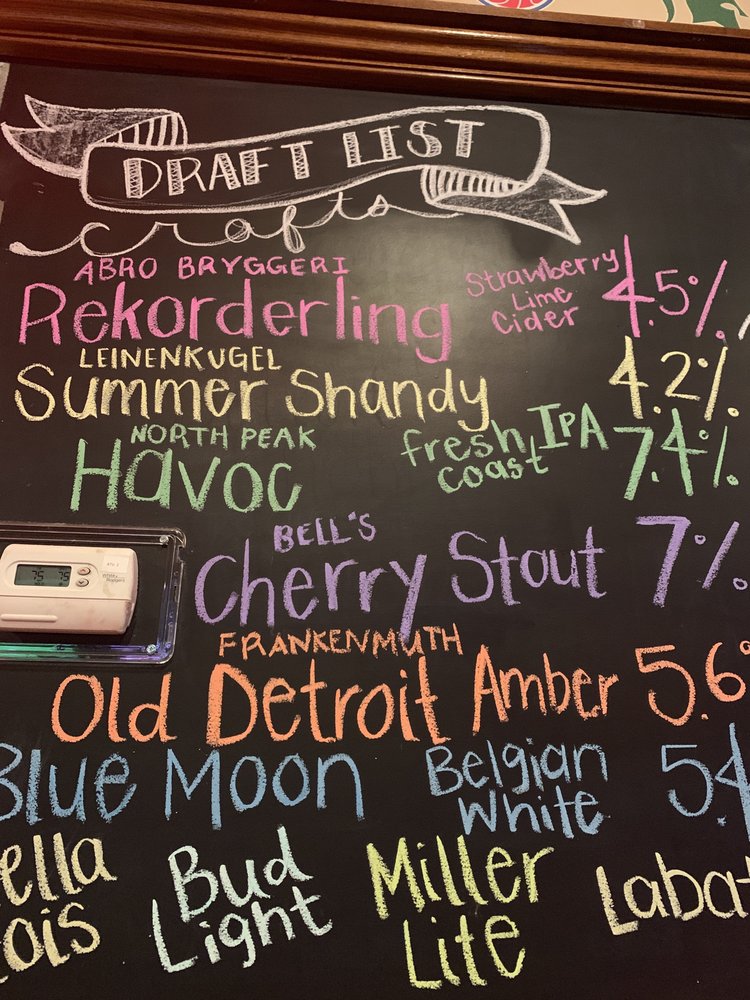 DRAFT LIST
crafts
ABRO BRYGGERI
Rekorderling Strawberry Lime Cider 4.5%
LEINENKUGEL
Summer Shandy 4.2%
NORTH PEAK
Havoc fresh coast IPA 7.4%
BELL'S
Cherry Stout 7%
75 75
FRANKENMUTH
Old Detroit Amber 5.6
Blue Moon Belgian White 5.4
ella ois
Bud Light
Miller Lite
Labat